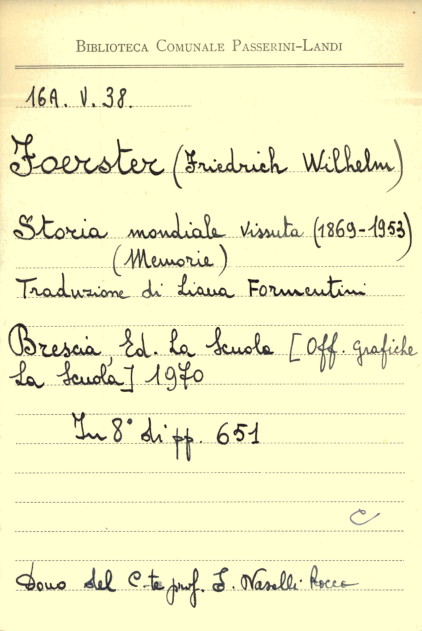 BIBLIOTECA COMUNALE PASSERINI-LANDI
16A. V. 38.
Foerster (Friedrich Wilhelm)
Storia mondiale vissuta (1869-1953)
(Memorie)
Traduzione di Liana Formentini
Brescia, Ed. La Scuola [Off. grafiche
La Scuola] 1970
In 8° di pp. 651
C
Dono del C.te prof. E. Naselli Rocca